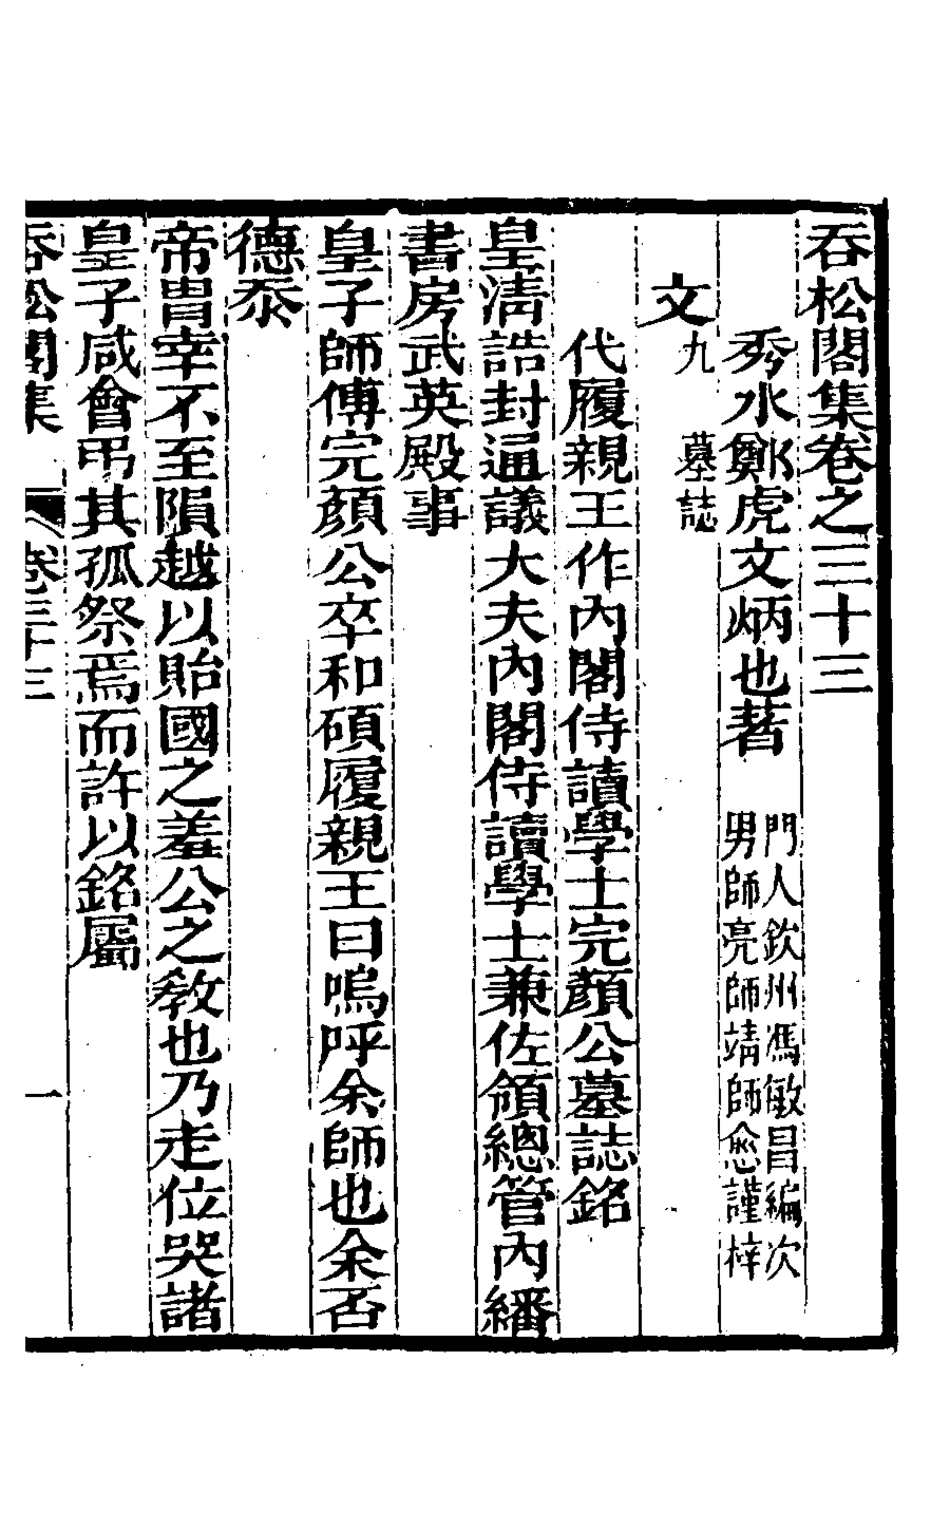 吞松閣集卷之三十三
秀水鄭虎文炳也著
門人欽州馮敏昌編次
男師亮師靖師愈謹梓
文九
墓誌
代履親王作內閣侍讀學士完顏公墓誌銘
皇淸誥封通議大夫內閣侍讀學士兼佐領總管內繙
書房武英殿事
皇子師傅完顏公卒和碩履親王曰嗚呼余師也余否
德忝
帝冑幸不至隕越以貽國之羞公之敎也乃走位哭諸
皇子咸會弔其孤祭焉而許以銘屬
吞松閣集
卷三十三
一